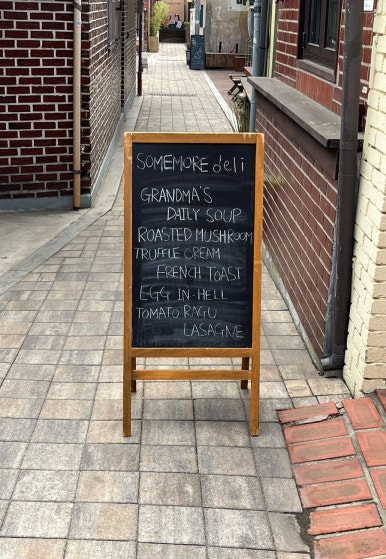 SOMEMORE deli
GRANDMA'S
DAILY SOUP
ROASTED MUSHROOM
TRUFFLE CREAM
FRENCH TOAST
EGG IN-HELL
TOMATO RAGU
LASAGNE